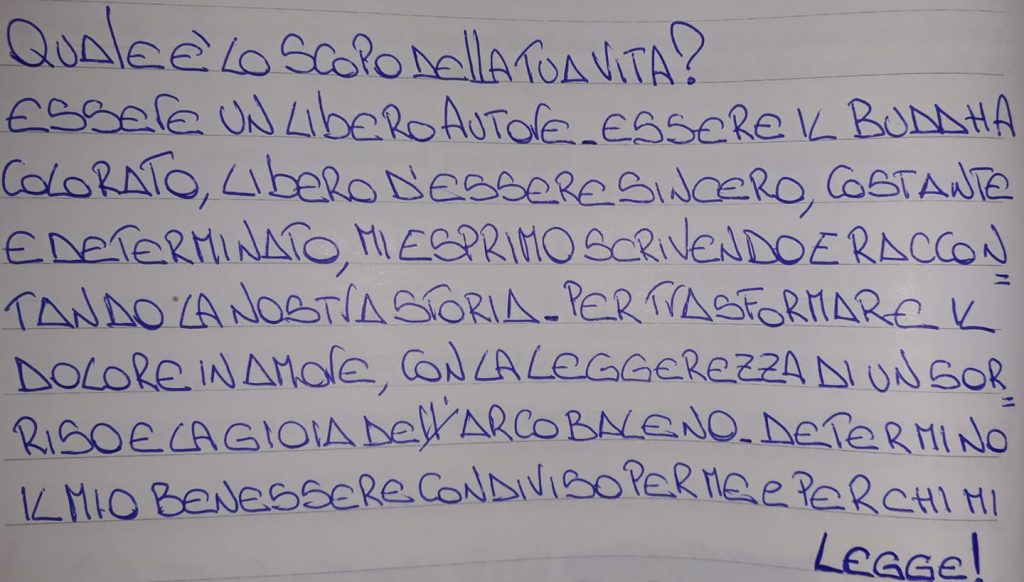 QUALE È LO SCOPO DELLA TUA VITA?
ESSERE UN LIBERO AUTORE_ESSERE IL BUDDHA
COLORATO, LIBERO D'ESSERE SINCERO, COSTANTE
E DETERMINATO, MI ESPRIMO SCRIVENDO E RACCON=
TANDO LA NOSTRA STORIA_PER TRASFORMARE IL
DOLORE IN AMORE, CON LA LEGGEREZZA DI UN SOR=
RISO E LA GIOIA DELL'ARCOBALENO_DETERMINO
IL MIO BENESSERE CONDIVISO PER ME E PER CHI MI
LEGGE!